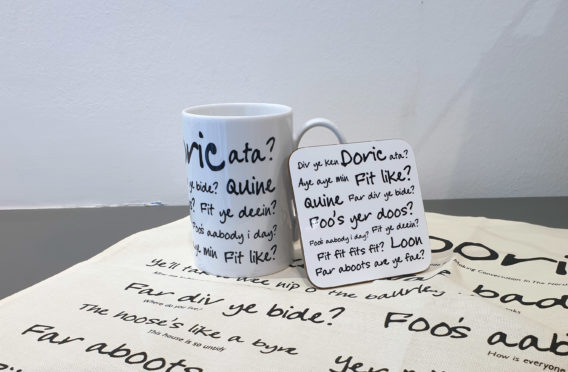 ric ata?
ye bide? Quine
? Fit ye deein?
Foo's aabody i day?
ye min Fit like?
Div ye ken Doric ata?
Aye aye min Fit like?
Quine Far div ye bide?
Foo's yer doos?
Foo's aabody i day? Fit ye deein?
Fit fit fits fit? Loon
Far aboots are ye fae?
Dori
Making Conversation in The
Ye'll take a wee nip o' the
Far div ye bide?
Where do you live?
The hoose's like a byre
This house is so untidy
Foo's aab
How is everyone
Far aboots